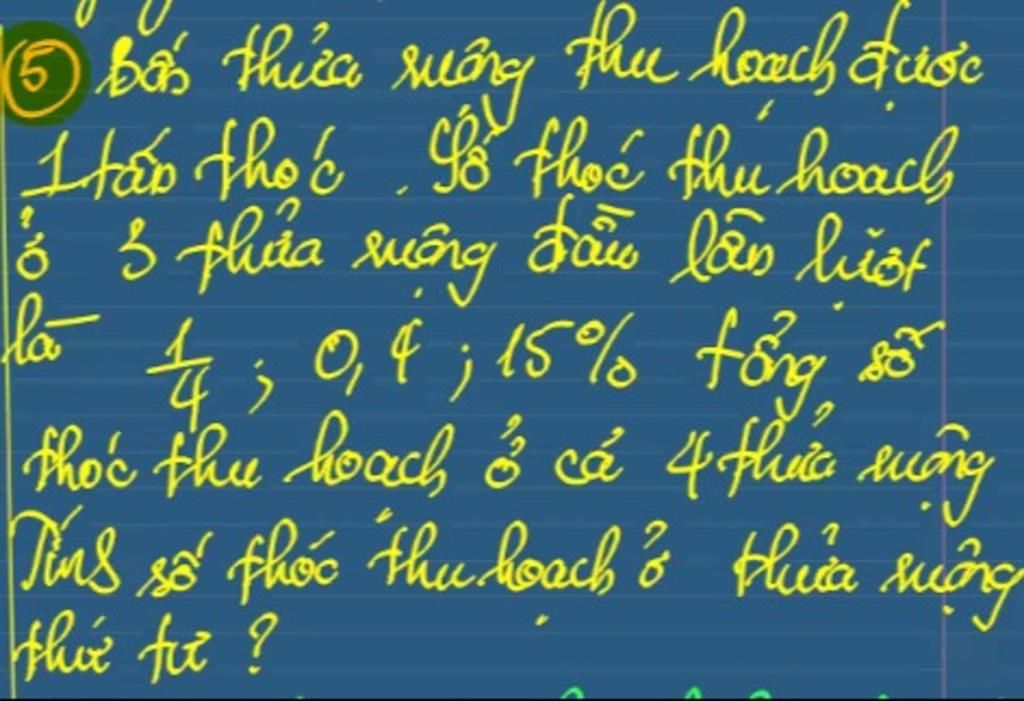 5 Bốn thửa ruộng thu hoạch được
1 tấn thóc. Số thóc thu hoạch
ở 3 thửa ruộng đầu lần lượt
là 1/4 ; 0,4 ; 15% tổng số
thóc thu hoạch ở cả 4 thửa ruộng
Tính số thóc thu hoạch ở thửa ruộng
thứ tư ?